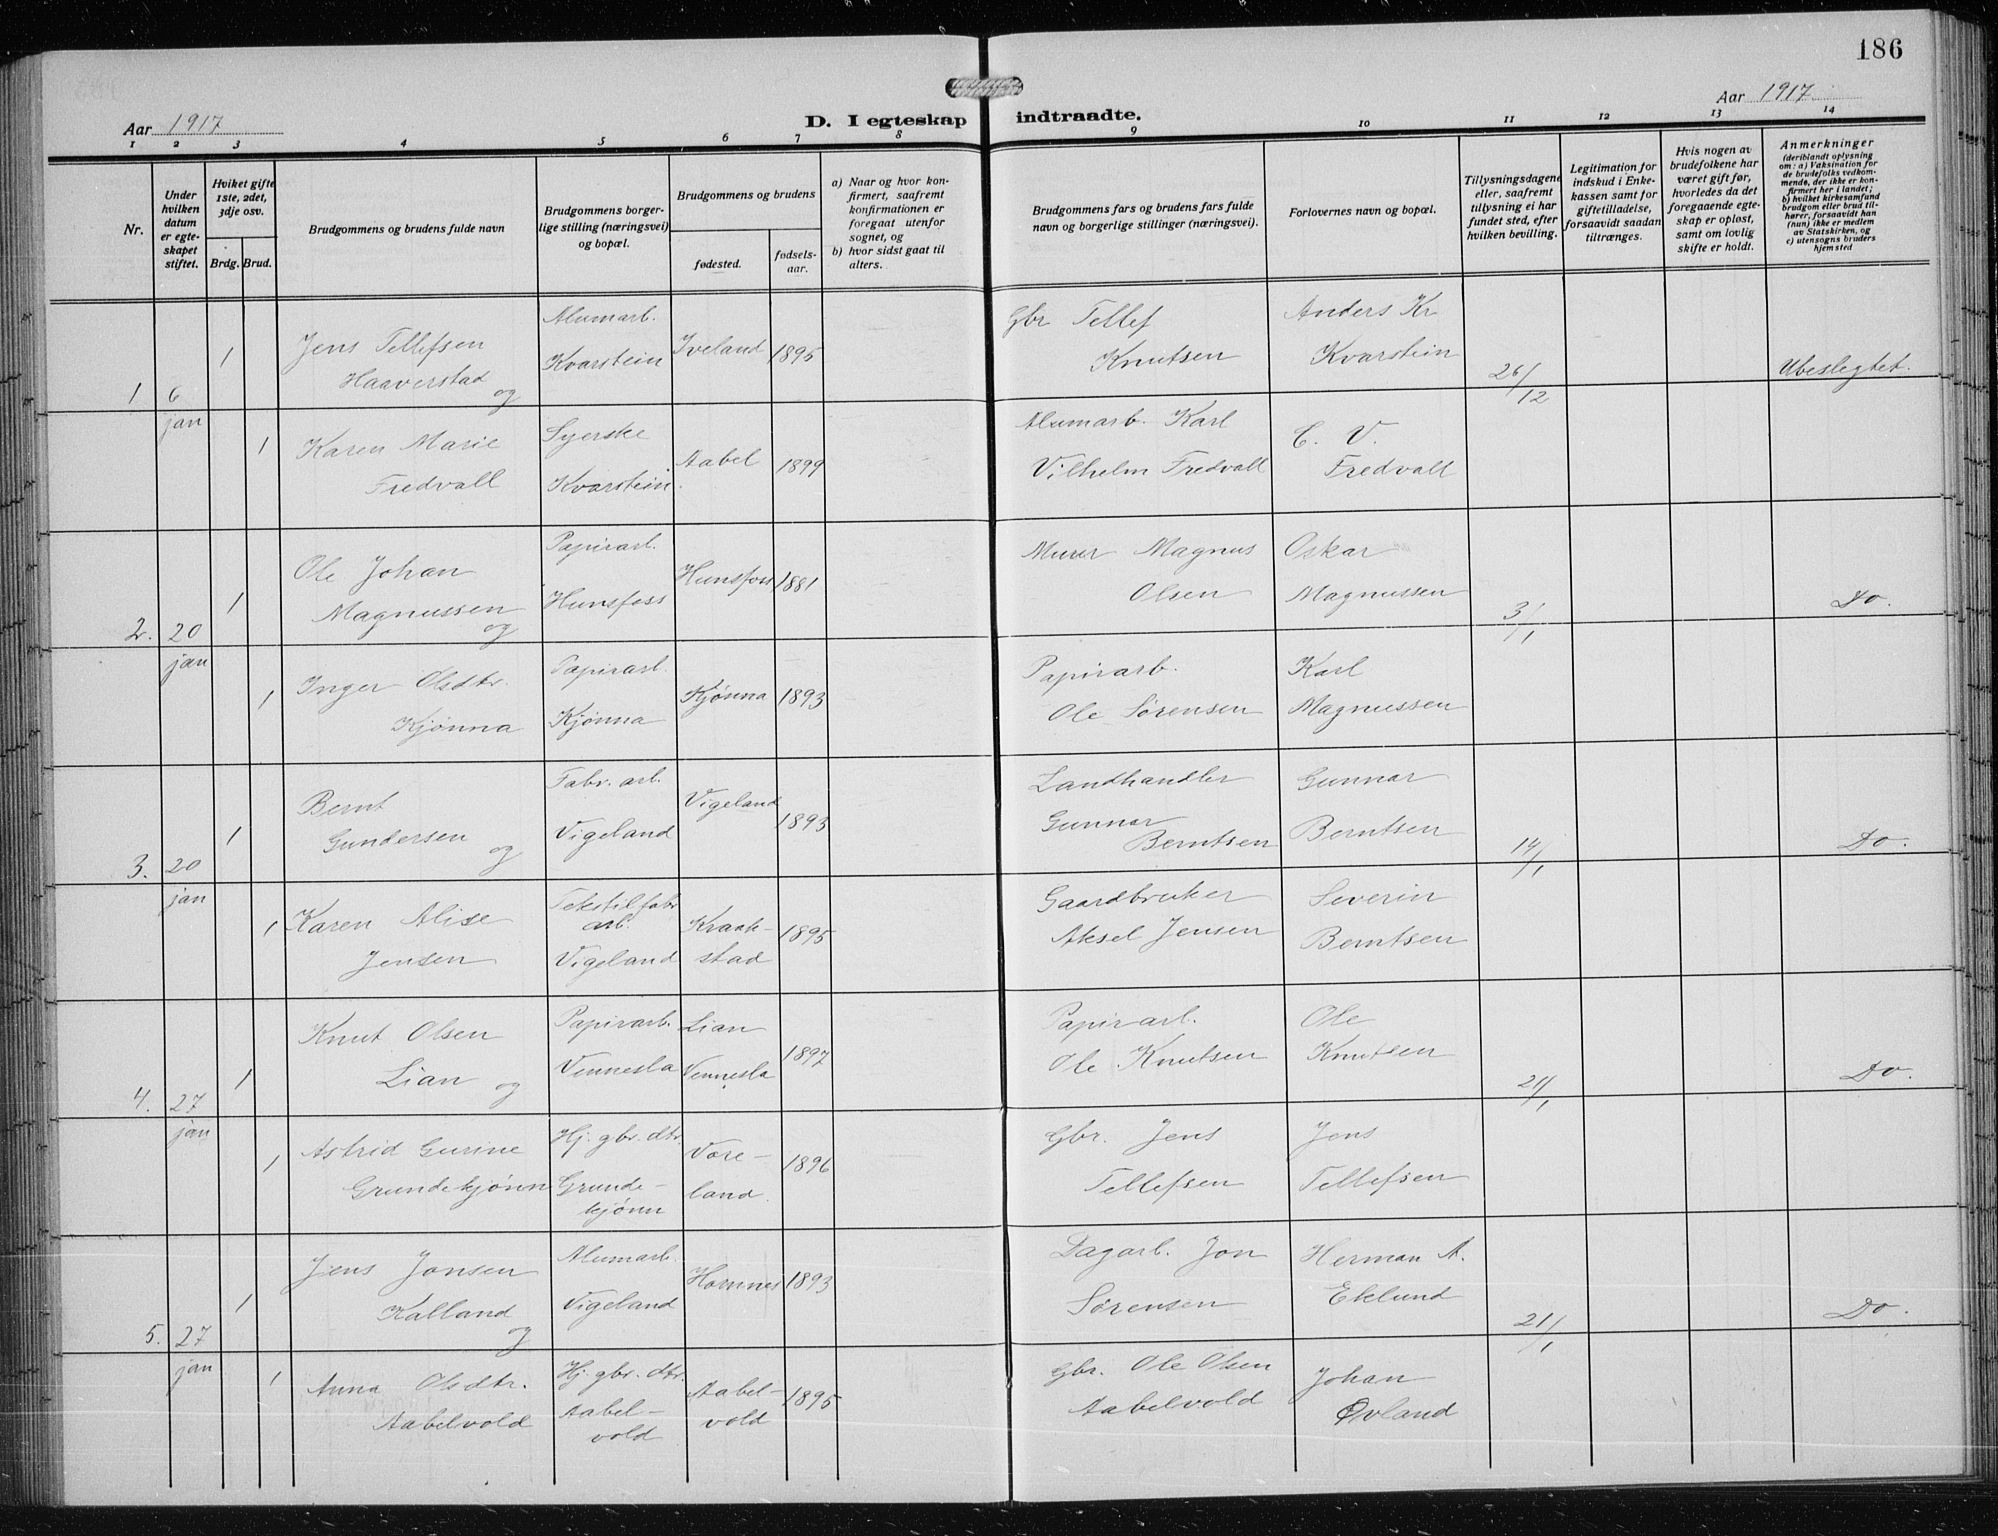 186
Aar 1917
D. I egteskap indtraadte.
Aar 1917
1 2 3 4 5 6 7 8 9 10 11 12 13 14
Nr.
Under hvilken datum er egteskapet stiftet.
Hviket gifte 1ste, 2det, 3dje osv.
Brdg. Brud.
Brudgommens og brudens fulde navn
Brudgommens borgerlige stilling (næringsvei) og bopæl.
Brudgommens og brudens
fødested.
fødselsaar.
a) Naar og hvor konfirmert, saafremt konfirmationen er foregaat utenfor sognet, og
b) hvor sidst gaat til alters.
Brudgommens fars og brudens fars fulde navn og borgerlige stillinger (næringsvei).
Forlovernes navn og bopæl.
Tillysningsdagene eller, saafremt tillysning ei har fundet sted, efter hvilken bevilling.
Legitimation for indskud i Enkekassen samt for giftetilladelse, forsaavidt saadan tiltrænges.
Hvis nogen av brudefolkene har været gift før, hvorledes da det foregaaende egteskap er opløst, samt om lovlig skifte er holdt.
Anmerkninger (deriblandt oplysning om: a) Vaksination for de brudefolks vedkommende, der ikke er konfirmert her i landet; b) hvilket kirkesamfund brudgom eller brud tilhører, forsaavidt han (hun) ikke er medlem av Statskirken, og c) utensogns bruders hjemsted
1 6 jan 1 Jens Tellefsen Haaverstad og Alumarb. Kvarstein Iveland 1895 Gbr Tellef Knutsen Anders Kr Kvarstein 26/12 Ubeslegtet.
1 Karen Marie Fredvall Syerske Kvarstein. Aabel 1899 Alumarb. Karl Vilhelm Fredvall C. V. Fredvall
2. 20 jan 1 Ole Johan Magnussen og Papirarb. Hunsfoss Hunsfoss 1881 Murer Magnus Olsen Oskar Magnussen 3/1 Do.
1 Inger Olsdtr. Kjønna Papirarb. Kjønna Kjønna 1893 Papirarb. Ole Sørensen Karl Magnussen
3. 20 jan 1 Bernt Gundersen og Fabr. arb. Vigeland Vigeland 1893 Landhandler Gunnar Berntsen Gunnar Berntsen 14/1 Do.
1 Karen Alise Jensen Tekstilfabr arb. Vigeland Kraakstad 1895 Gaardbruker Aksel Jensen Severin Berntsen
4. 27 jan 1 Knut Olsen Lian og Papirarb. Vennesla Lian Vennesla 1897 Papirarb. Ole Knutsen Ole Knutsen 21/1 Do.
1 Astrid Gurine Grundekjønn Hj. gbr. dtr. Grundekjønn Voreland. 1896 Gbr. Jens Tellefsen Jens Tellefsen
5. 27 jan 1 Jens Jonsen Kalland og Alumarb. Vigeland Hornnes 1893 Dagarb. Jon Sørensen Herman A. Eklund 21/1 Do.
1 Anna Olsdtr. Aabelvold Hj. gbr. dtr. Aabelvold Aabelvold 1895 Gbr. Ole Olsen Aabelvold Johan Øvland